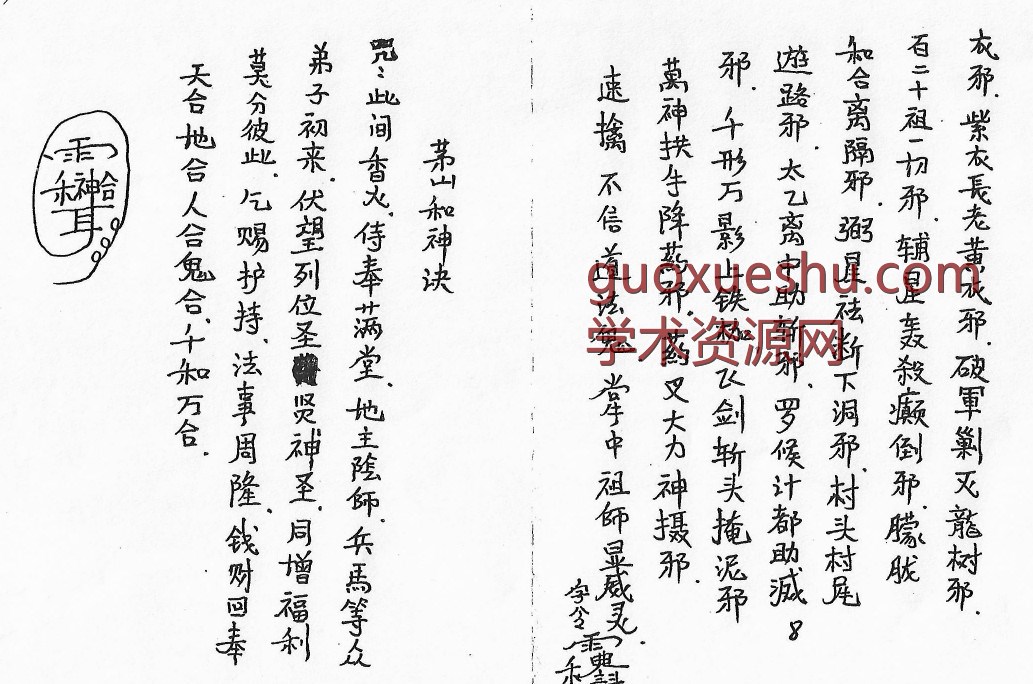 衣邪.紫衣長老黄衣邪.破軍剿灭龍树邪.
百二十祖一切邪.辅星轰殺癫倒邪.朦胧
和合离隔邪.弼星祛断下洞邪.村头村尾
遊路邪.太乙离中助斩邪.罗候计都助滅
8
邪.千形万影上铁枷飞剑斩头掩泥邪
萬神拱手降药邪.药叉大力神摄邪.
速擒不信道法鬼掌中祖師显威灵.
字令
茅山和神诀
咒:此间香火.侍奉满堂.地主陰師.兵馬等众
弟子初来.伏望列位圣贤神圣.同增福利
莫分彼此.乞赐护持.法事周隆.钱财回奉
天合地合人合鬼合.千和万合.
guoxueshu.com
学术资源网